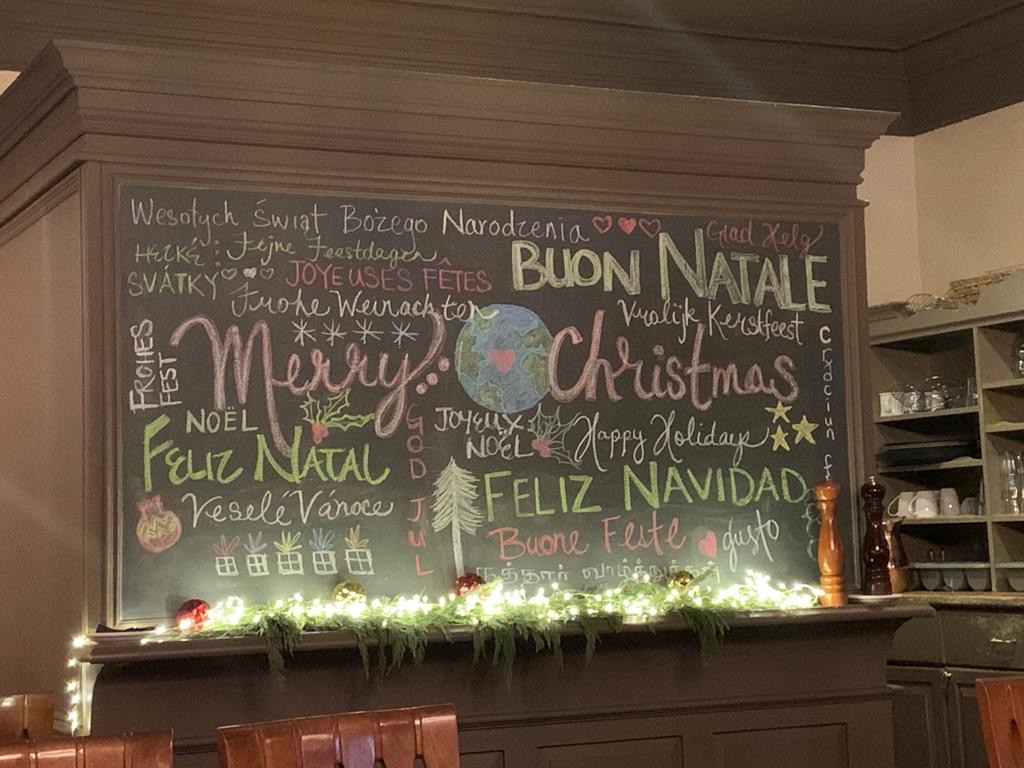 Wesołych Świąt Bożego Narodzenia
Glad Helg
HEZKÉ
SVÁTKY
Fejne Feestdagen
JOYEUSES FÊTES
BUON NATALE
Frohe Weinachten
Vrolijk Kerstfeest
FROHES
FEST
Merry Christmas
Crăciun f
NOËL
GOD JUL
JOYEUX
NOËL
Happy Holidays
FELIZ NATAL
FELIZ NAVIDAD
Veselé Vánoce
Buone Feste
gusto
நத்தார் வாழ்த்துக்கள்